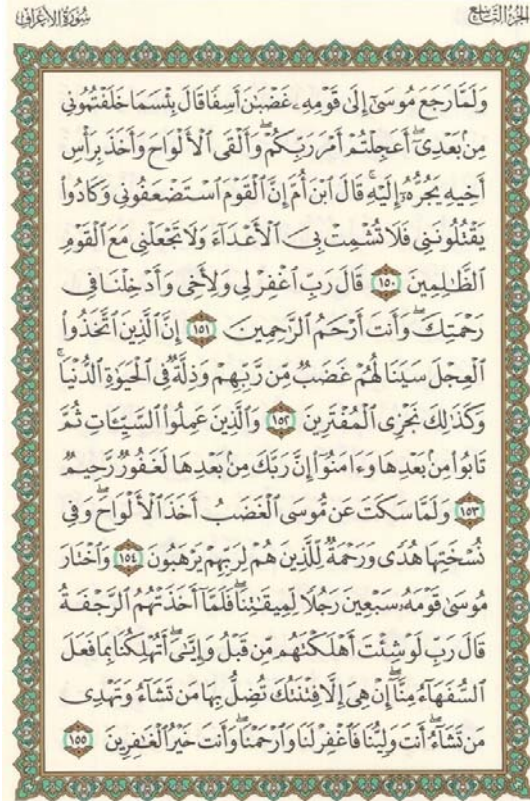 الجزء التاسع
سورة الأعراف
وَلَمَّا رَجَعَ مُوسَىٰٓ إِلَىٰ قَوْمِهِۦ غَضْبَٰنَ أَسِفًا قَالَ بِئْسَمَا خَلَفْتُمُونِى
مِنۢ بَعْدِىٓۖ أَعَجِلْتُمْ أَمْرَ رَبِّكُمْۖ وَأَلْقَى ٱلْأَلْوَاحَ وَأَخَذَ بِرَأْسِ
أَخِيهِ يَجُرُّهُۥٓ إِلَيْهِۚ قَالَ ٱبْنَ أُمَّ إِنَّ ٱلْقَوْمَ ٱسْتَضْعَفُونِى وَكَادُوا۟
يَقْتُلُونَنِى فَلَا تُشْمِتْ بِىَ ٱلْأَعْدَآءَ وَلَا تَجْعَلْنِى مَعَ ٱلْقَوْمِ
ٱلظَّٰلِمِينَ ١٥٠ قَالَ رَبِّ ٱغْفِرْ لِى وَلِأَخِى وَأَدْخِلْنَا فِى
رَحْمَتِكَۖ وَأَنتَ أَرْحَمُ ٱلرَّٰحِمِينَ ١٥١ إِنَّ ٱلَّذِينَ ٱتَّخَذُوا۟
ٱلْعِجْلَ سَيَنَالُهُمْ غَضَبٌ مِّن رَّبِّهِمْ وَذِلَّةٌ فِى ٱلْحَيَوٰةِ ٱلدُّنْيَاۚ
وَكَذَٰلِكَ نَجْزِى ٱلْمُفْتَرِينَ ١٥٢ وَٱلَّذِينَ عَمِلُوا۟ ٱلسَّيِّـَٔاتِ ثُمَّ
تَابُوا۟ مِنۢ بَعْدِهَا وَءَامَنُوٓا۟ إِنَّ رَبَّكَ مِنۢ بَعْدِهَا لَغَفُورٌ رَّحِيمٌ
١٥٣ وَلَمَّا سَكَتَ عَن مُّوسَى ٱلْغَضَبُ أَخَذَ ٱلْأَلْوَاحَۖ وَفِى
نُسْخَتِهَا هُدًى وَرَحْمَةٌ لِّلَّذِينَ هُمْ لِرَبِّهِمْ يَرْهَبُونَ ١٥٤ وَٱخْتَارَ
مُوسَىٰ قَوْمَهُۥ سَبْعِينَ رَجُلًا لِّمِيقَٰتِنَاۖ فَلَمَّآ أَخَذَتْهُمُ ٱلرَّجْفَةُ
قَالَ رَبِّ لَوْ شِئْتَ أَهْلَكْتَهُم مِّن قَبْلُ وَإِيَّٰىَۖ أَتُهْلِكُنَا بِمَا فَعَلَ
ٱلسُّفَهَآءُ مِنَّآۖ إِنْ هِىَ إِلَّا فِتْنَتُكَ تُضِلُّ بِهَا مَن تَشَآءُ وَتَهْدِى
مَن تَشَآءُۖ أَنتَ وَلِيُّنَا فَٱغْفِرْ لَنَا وَٱرْحَمْنَاۖ وَأَنتَ خَيْرُ ٱلْغَٰفِرِينَ ١٥٥